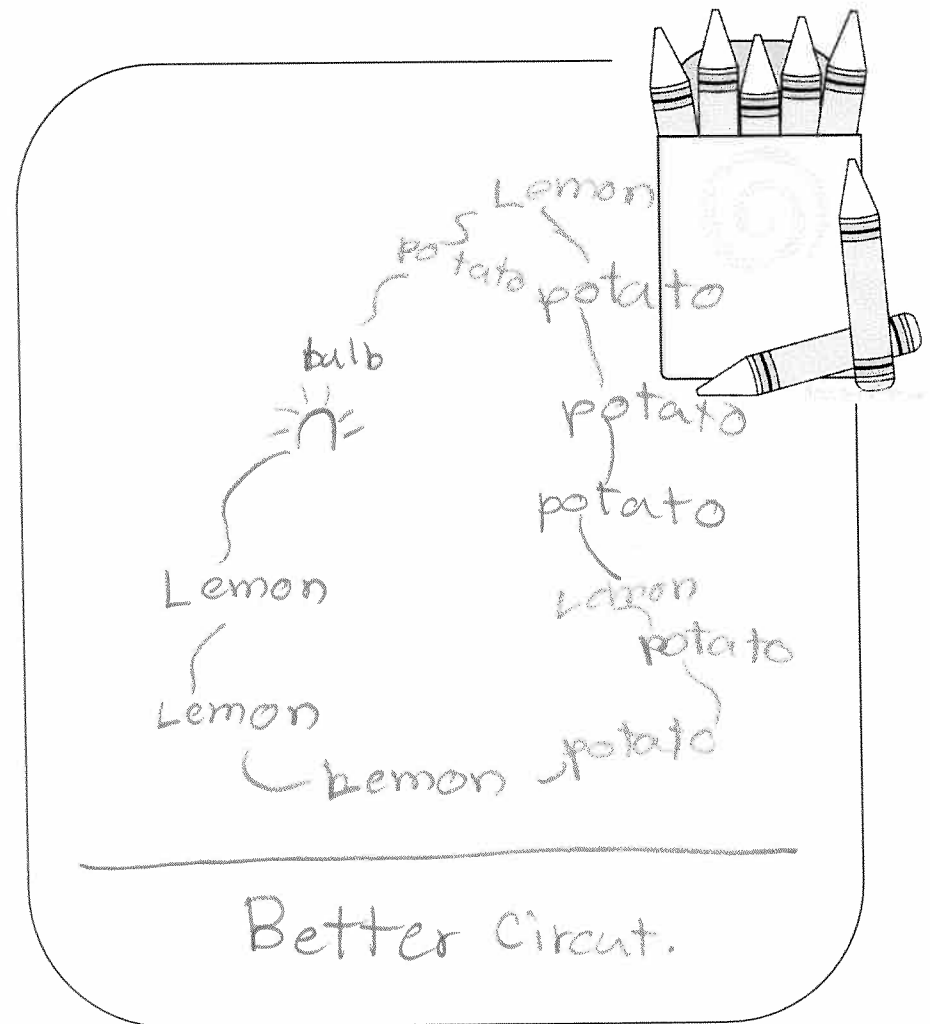 Lemon
potato
potato
bulb
potato
potato
Lemon
Lemon
potato
Lemon
potato
Lemon
Better Circut.